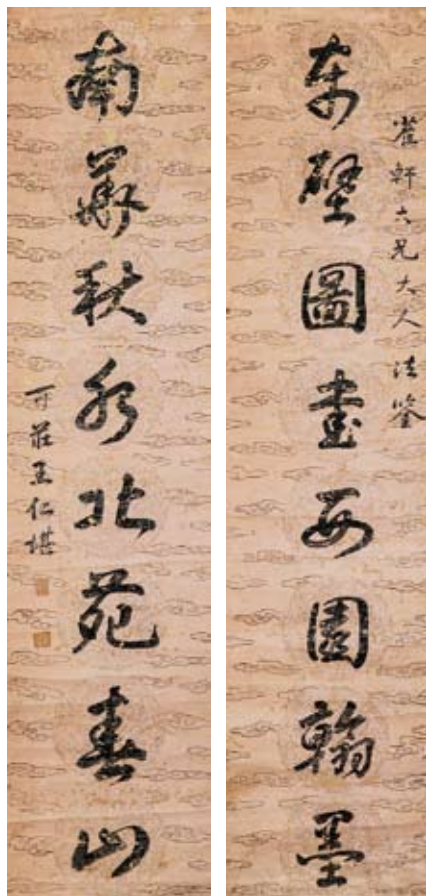 雀軒六兄大人 法鉴
东壁圖書西園翰墨
南華秋水北苑春山
可莊王仁堪